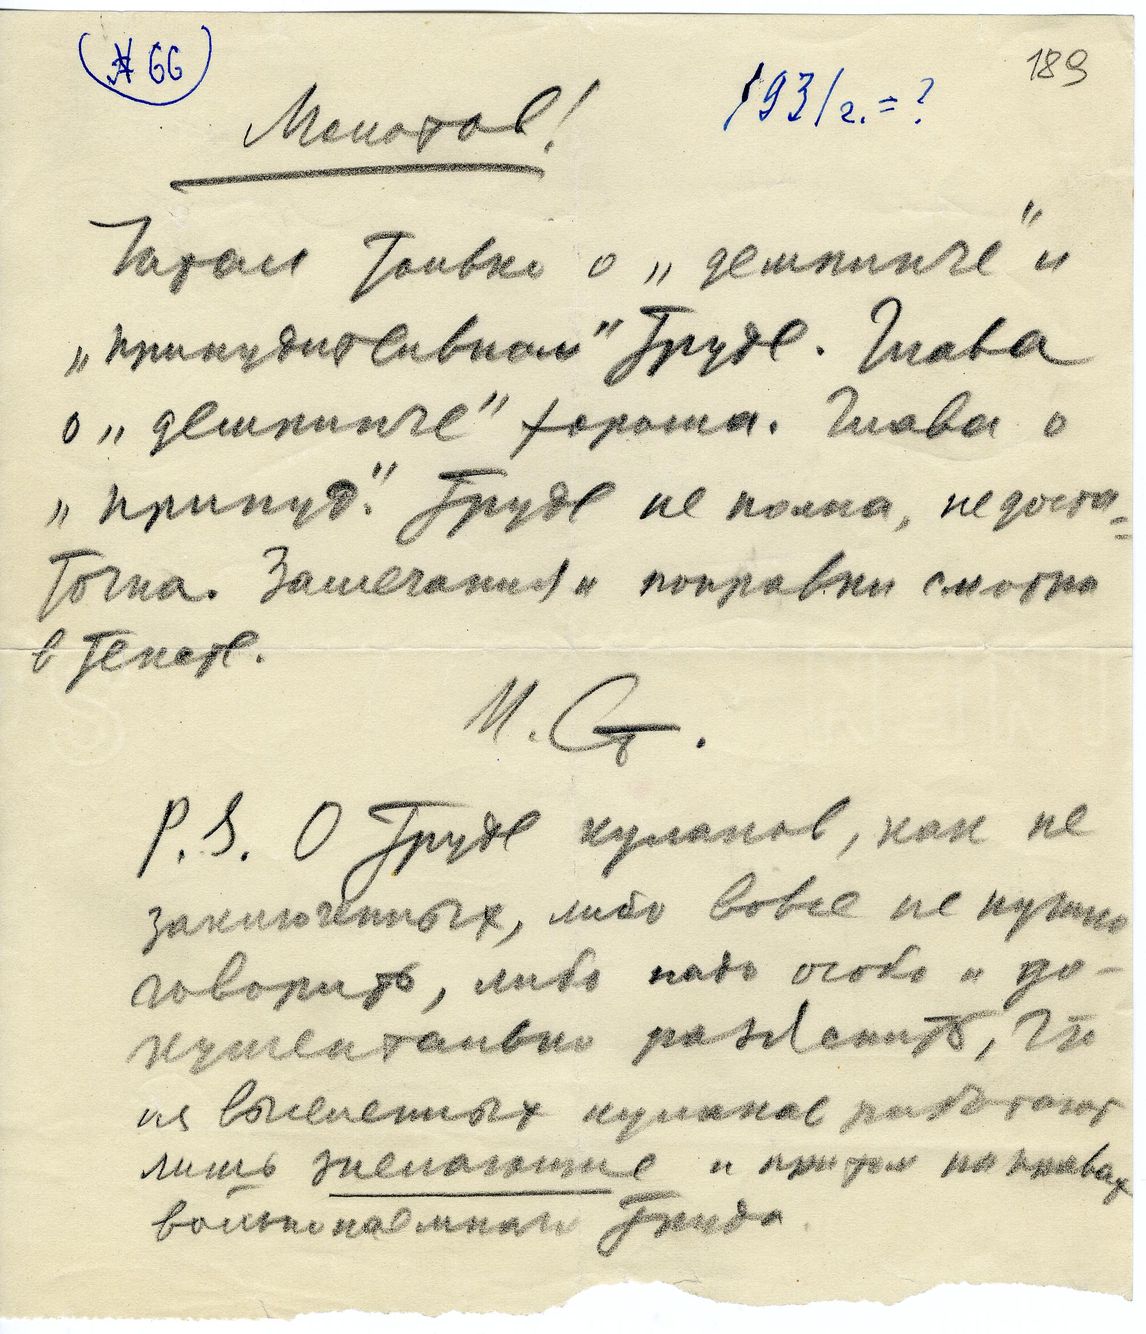 (№ 66)
189
1931 г. = ?
Молотов!
Читал только о „демпинге" и
„принудительном" труде. Глава
о „демпинге" хороша. Глава о
„принуд." труде не полна, недоста=
точна. Замечания и поправки смотри
в тексте.
И. Ст.
P.S. О труде кулаков, как не
заключенных, либо вовсе не нужно
говорить, либо надо особо и до-
кументально разъяснить, что
из выселенных кулаков работают
лишь желающие и притом на правах
вольнонаемного труда.